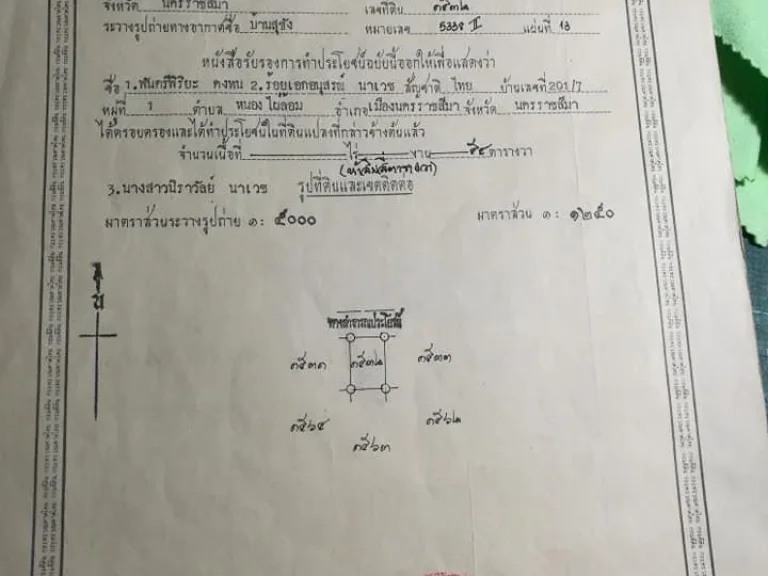 จังหวัด นครราชสีมา เลขที่ดิน ๑๕๓๒
ระวางรูปถ่ายทางอากาศชื่อ บ้านสุขัง หมายเลข 5338 II แผ่นที่ 13
หนังสือรับรองการทำประโยชน์ฉบับนี้ออกให้เพื่อแสดงว่า
ชื่อ 1.พันตรีพิริยะ คงทน 2.ร้อยเอกอนุสรณ์ นาเวช สัญชาติ ไทย บ้านเลขที่ 201/7
หมู่ที่ 1 ตำบล หนองไผ่ล้อม อำเภอ เมืองนครราชสีมา จังหวัด นครราชสีมา
ได้ครอบครองและได้ทำประโยชน์ในที่ดินแปลงที่กล่าวข้างต้นแล้ว
จำนวนเนื้อที่ ไร่ งาน ๕๔ ตารางวา
(ห้าสิบสี่ตารางวา)
3.นางสาวนิราวัลย์ นาเวช รูปที่ดินและเขตติดต่อ
มาตราส่วนระวางรูปถ่าย ๑: ๕๐๐๐ มาตราส่วน ๑: ๑๒๕๐
น
ทางสาธารณประโยชน์
๑๕๓๑ ๑๕๓๒ ๑๕๓๓
๑๕๖๔ ๑๕๖๓ ๑๕๖๒